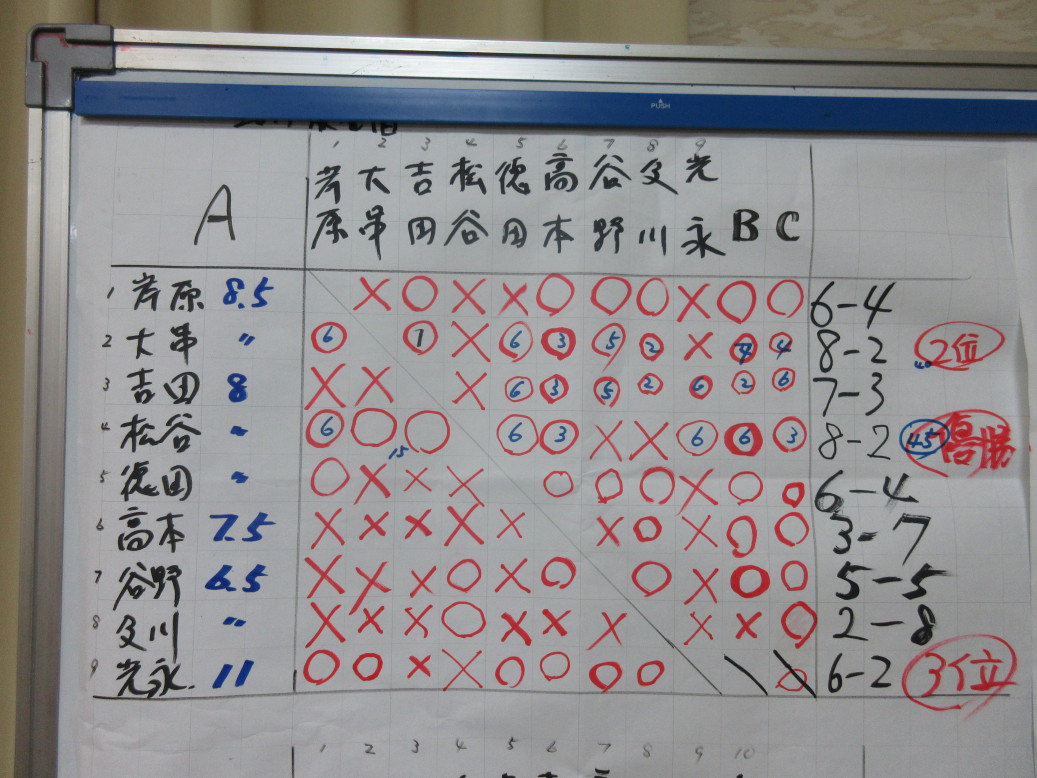 PUSH
1 2 3 4 5 6 7 8 9
A 岩原 大串 吉田 松谷 德田 高本 谷野 及川 光永 B C
1 岩原 8.5 × ○ × × ○ ○ ○ × ○ ○ 6-4
2 大串 〃 6 7 × 6 3 5 2 × 7 4 8-2 2位
3 吉田 8 × × × 6 3 5 2 6 2 6 7-3
4 松谷 〃 6 ○ ○ 15 6 3 × × 6 6 3 8-2 45 優勝
5 德田 〃 ○ × × × ○ ○ ○ × ○ ○ 6-4
6 高本 7.5 × × × × × × ○ × ○ ○ 3-7
7 谷野 6.5 × × × ○ × ○ ○ × ○ ○ 5-5
8 及川 〃 × × × ○ × × × × × ○ 2-8
9 光永 11 ○ ○ × × ○ ○ ○ ○ 6-2 3位
1 2 3 4 5 6 7 8 9 10